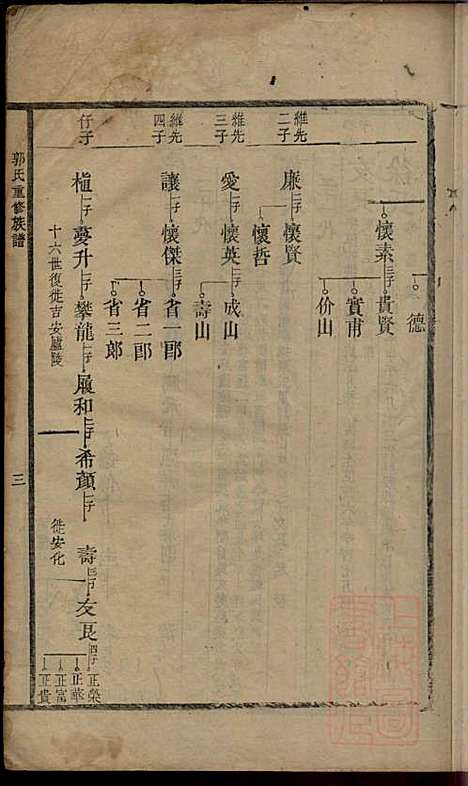 德
懷素 三子 貴賢
實甫
价山
維先二子
廉 二子 懷賢
懷哲
維先三子
愛 一子 懷英 二子 成山
壽山
維先四子
讓 一子 懷傑 三子 省一郎
省二郎
省三郎
仔子
植 一子 蔓升 一子 攀龍 一子 履和 二子 希顏 一子 壽 三子 友良 四子 正榮
正華
正富
正貴
十六世復徙吉安廬陵
徙安化
郭氏重修族譜
三